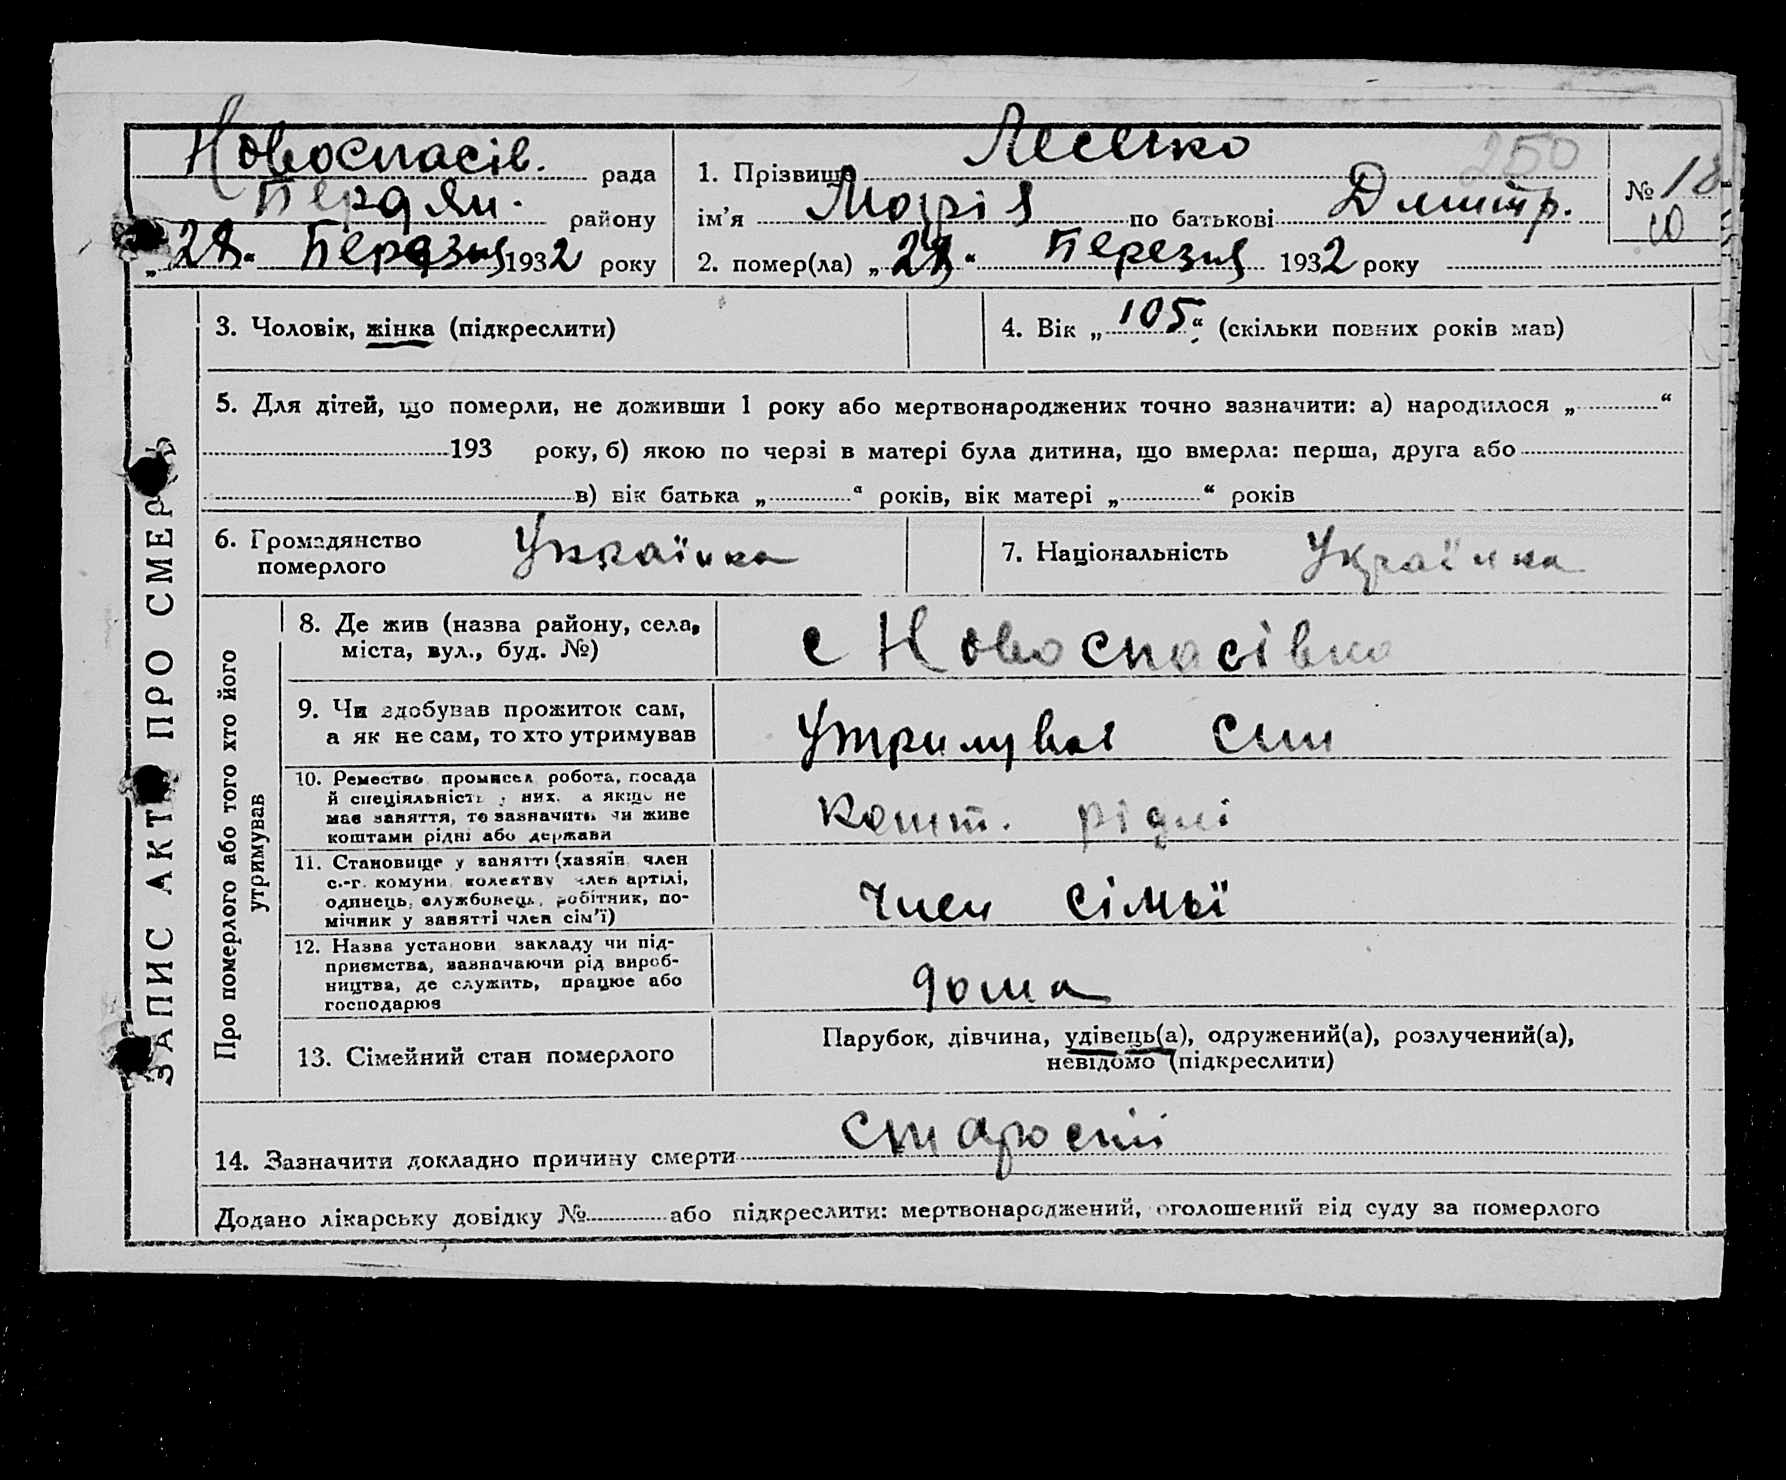 Новоспасів. рада
Бердян. району
„28“ Березня 1932 року
1. Прізвище Лесенко
250
ім’я Марія по батькові Дмитр.
2. помер(ла) „ “ Березня 1932 року
№ 18
10
ЗАПИС АКТУ ПРО СМЕРТЬ
3. Чоловік, жінка (підкреслити)
4. Вік „105“ (скільки повних років мав)
5. Для дітей, що померли, не доживши 1 року або мертвонароджених точно зазначити: а) народилося „ “
193 року, б) якою по черзі в матері була дитина, що вмерла: перша, друга або
в) вік батька „ “ років, вік матері „ “ років
6. Громадянство
померлого
Українка
7. Національність Українка
Про померлого або того хто його
утримував
8. Де жив (назва району, села,
міста, вул., буд. №)
с Новоспасівка
9. Чи здобував прожиток сам,
а як не сам, то хто утримував
Утримував син
10. Ремество, промисел, робота, посада
й спеціяльність у них, а якщо не
має заняття, то зазначить чи живе
коштами рідні або держави
Кошт. рідні
11. Становище у занятті (хазяїн, член
с.-г. комуни, колективу, член артілі,
одинець, службовець, робітник, по-
мічник у занятті член сім’ї)
Член сімьї
12. Назва установи, закладу чи під-
приємства, зазначаючи рід вироб-
ництва, де служить, працює або
господарює
дома
13. Сімейний стан померлого
Парубок, дівчина, удівець(а), одружений(а), розлучений(а),
невідомо (підкреслити)
14. Зазначити докладно причину смерти старости
Додано лікарську довідку № або підкреслити: мертвонароджений, оголошений від суду за померлого